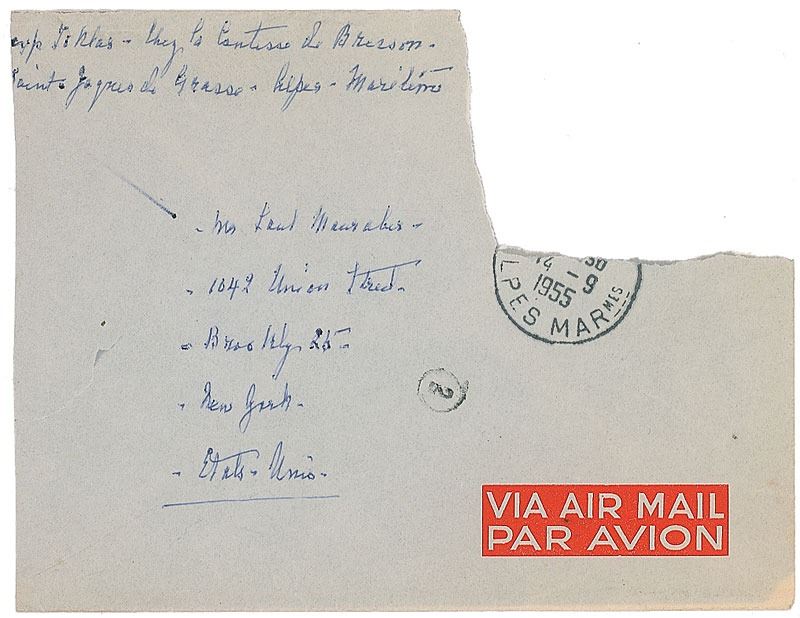 Toklas - Chez la Comtesse de
Saint-Jaques de Grasse - Alpes - Maritimes
- Mr
- 1042 Union Street -
- Brooklyn 25 -
- New York -
- Etats-Unis -
14 - 9
1955
LPES MAR MES
2
VIA AIR MAIL
PAR AVION